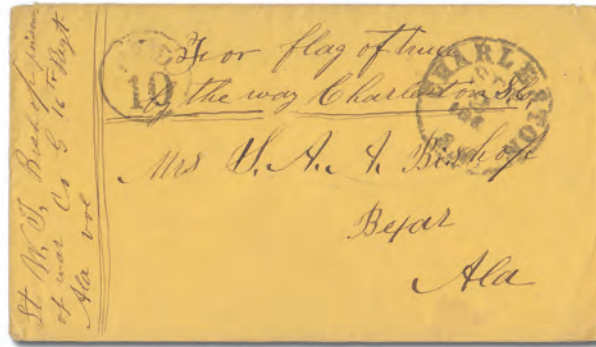 Lt W. T. Bishop prisoner
of war Co G 16th Regt
Ala vol
10
For flag of truce
by the way Charleston S.C.
CHARLESTON
Mrs S. A. A. Bishop
Bexar
Ala